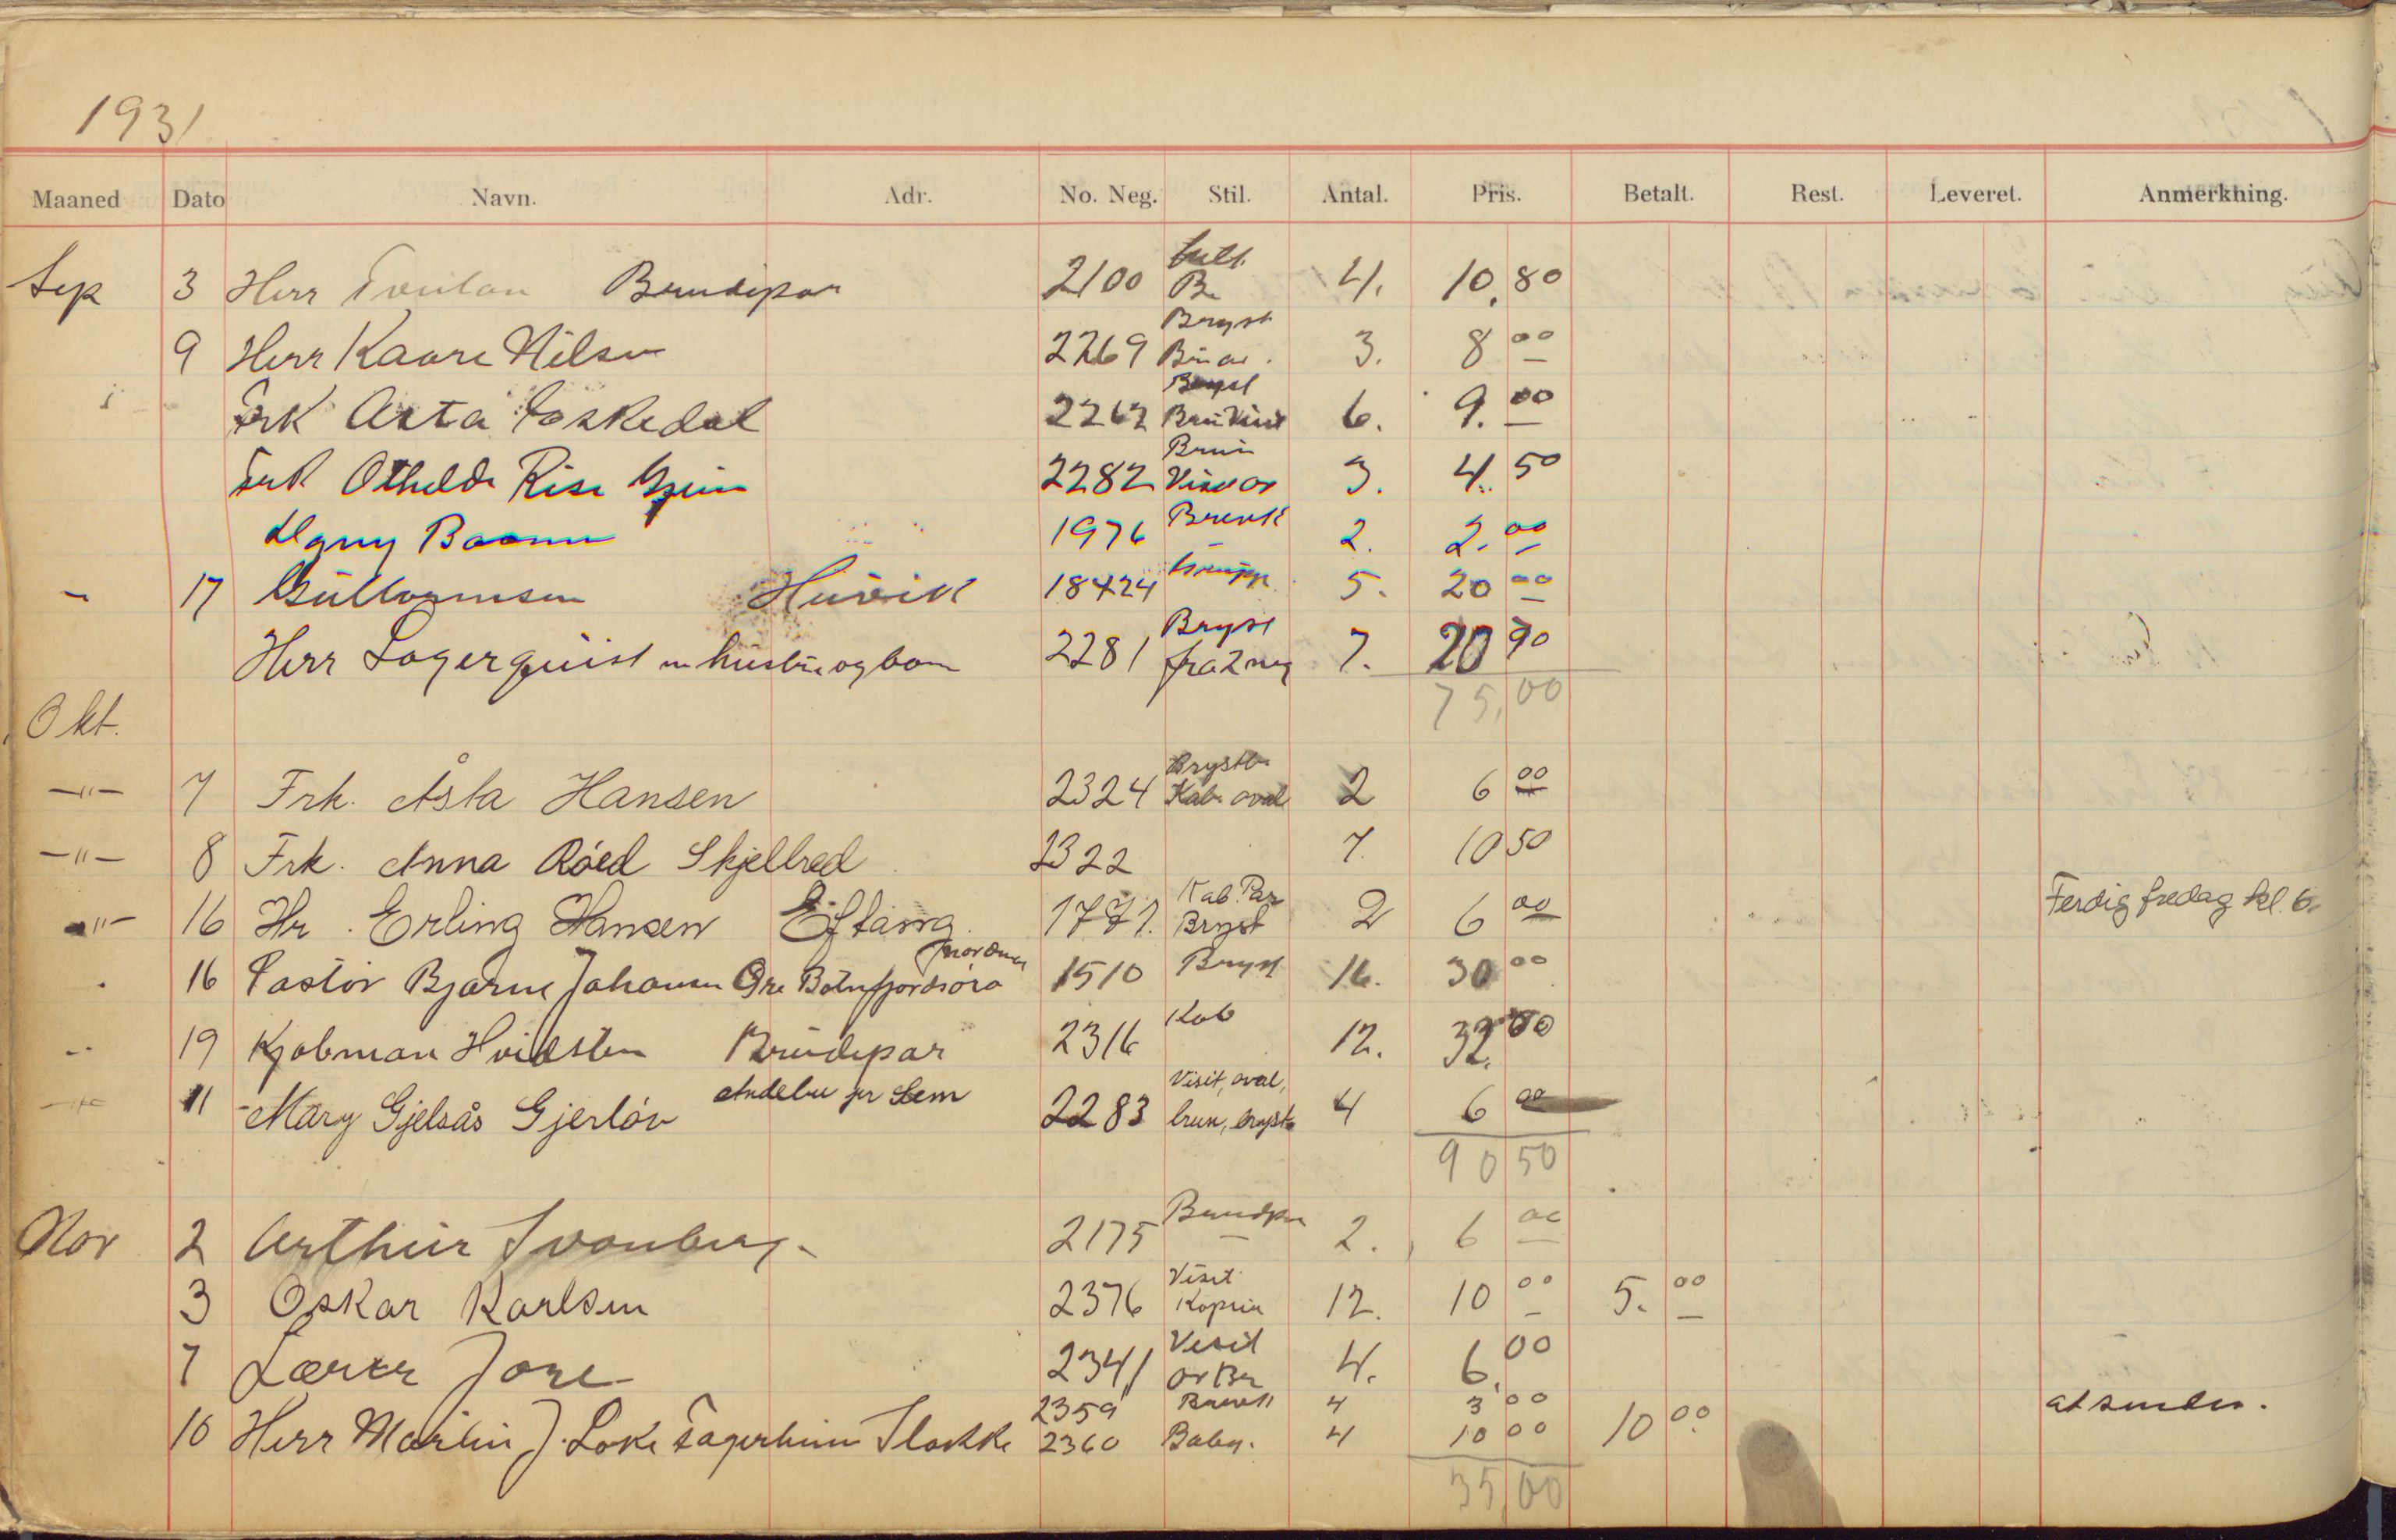 1931
Maaned Dato Navn. Adr. No. Neg. Stil. Antal. Pris. Betalt. Rest. Leveret. Anmerkning.
Sep 3 Herr Brudepar 2100 B. 4. 10,80
9 Herr Kaare Nilsen 2269 Bryst 3. 8 00
Frk Asta 2262 Bryst Brun Visit 6. 9. 00
Frk Othelde Rise 2282 Brun Visit ov 3. 4. 50
Dagny 1976 Brevk 2. 2. 00
17 Gullormsen Husvik 18424 Grupp 5. 20 00
Herr Lagerquist m hustru og barn 2281 Bryst fra 2 neg 7. 20 70
75,00
Okt.
—"— 7 Frk. Åsta Hansen 2324 Brystb. Kab. oval 2 6 00
—"— 8 Frk. Anna Röed Skjelbred 2322 7. 10 50
—"— 16 Hr. Erling Hansen Eftang. 1771. Kab. Par Bryst 2 6 00 Ferdig fredag kl. 6.
16 Pastor Bjarne Johansen Øre Batnfjordsøra Nordmør 1510 Bryst 16. 30 00
19 Kjøbman Hvidsten Brudepar 2316 Kab 12. 32. 00
—"— 11 Mary Gjelsås Gjerløv Andebu pr Sem 2283 Visit, oval, brun, bryst 4 6 00
90 50
Nov 2 Arthur Svanberg. 2175 Brudpar 2. 6 00
3 Oskar Karlsen 2376 Visit Kopier 12. 10 00 5. 00
7 Lærer Jore 2341 Visit ov Br 4. 6. 00
2359 Brevk 4 3 00
10 Herr Martin J. Loke Fagerheim Slokke 2360 Baby. 4 10 00 10 00. at sendes.
35,00